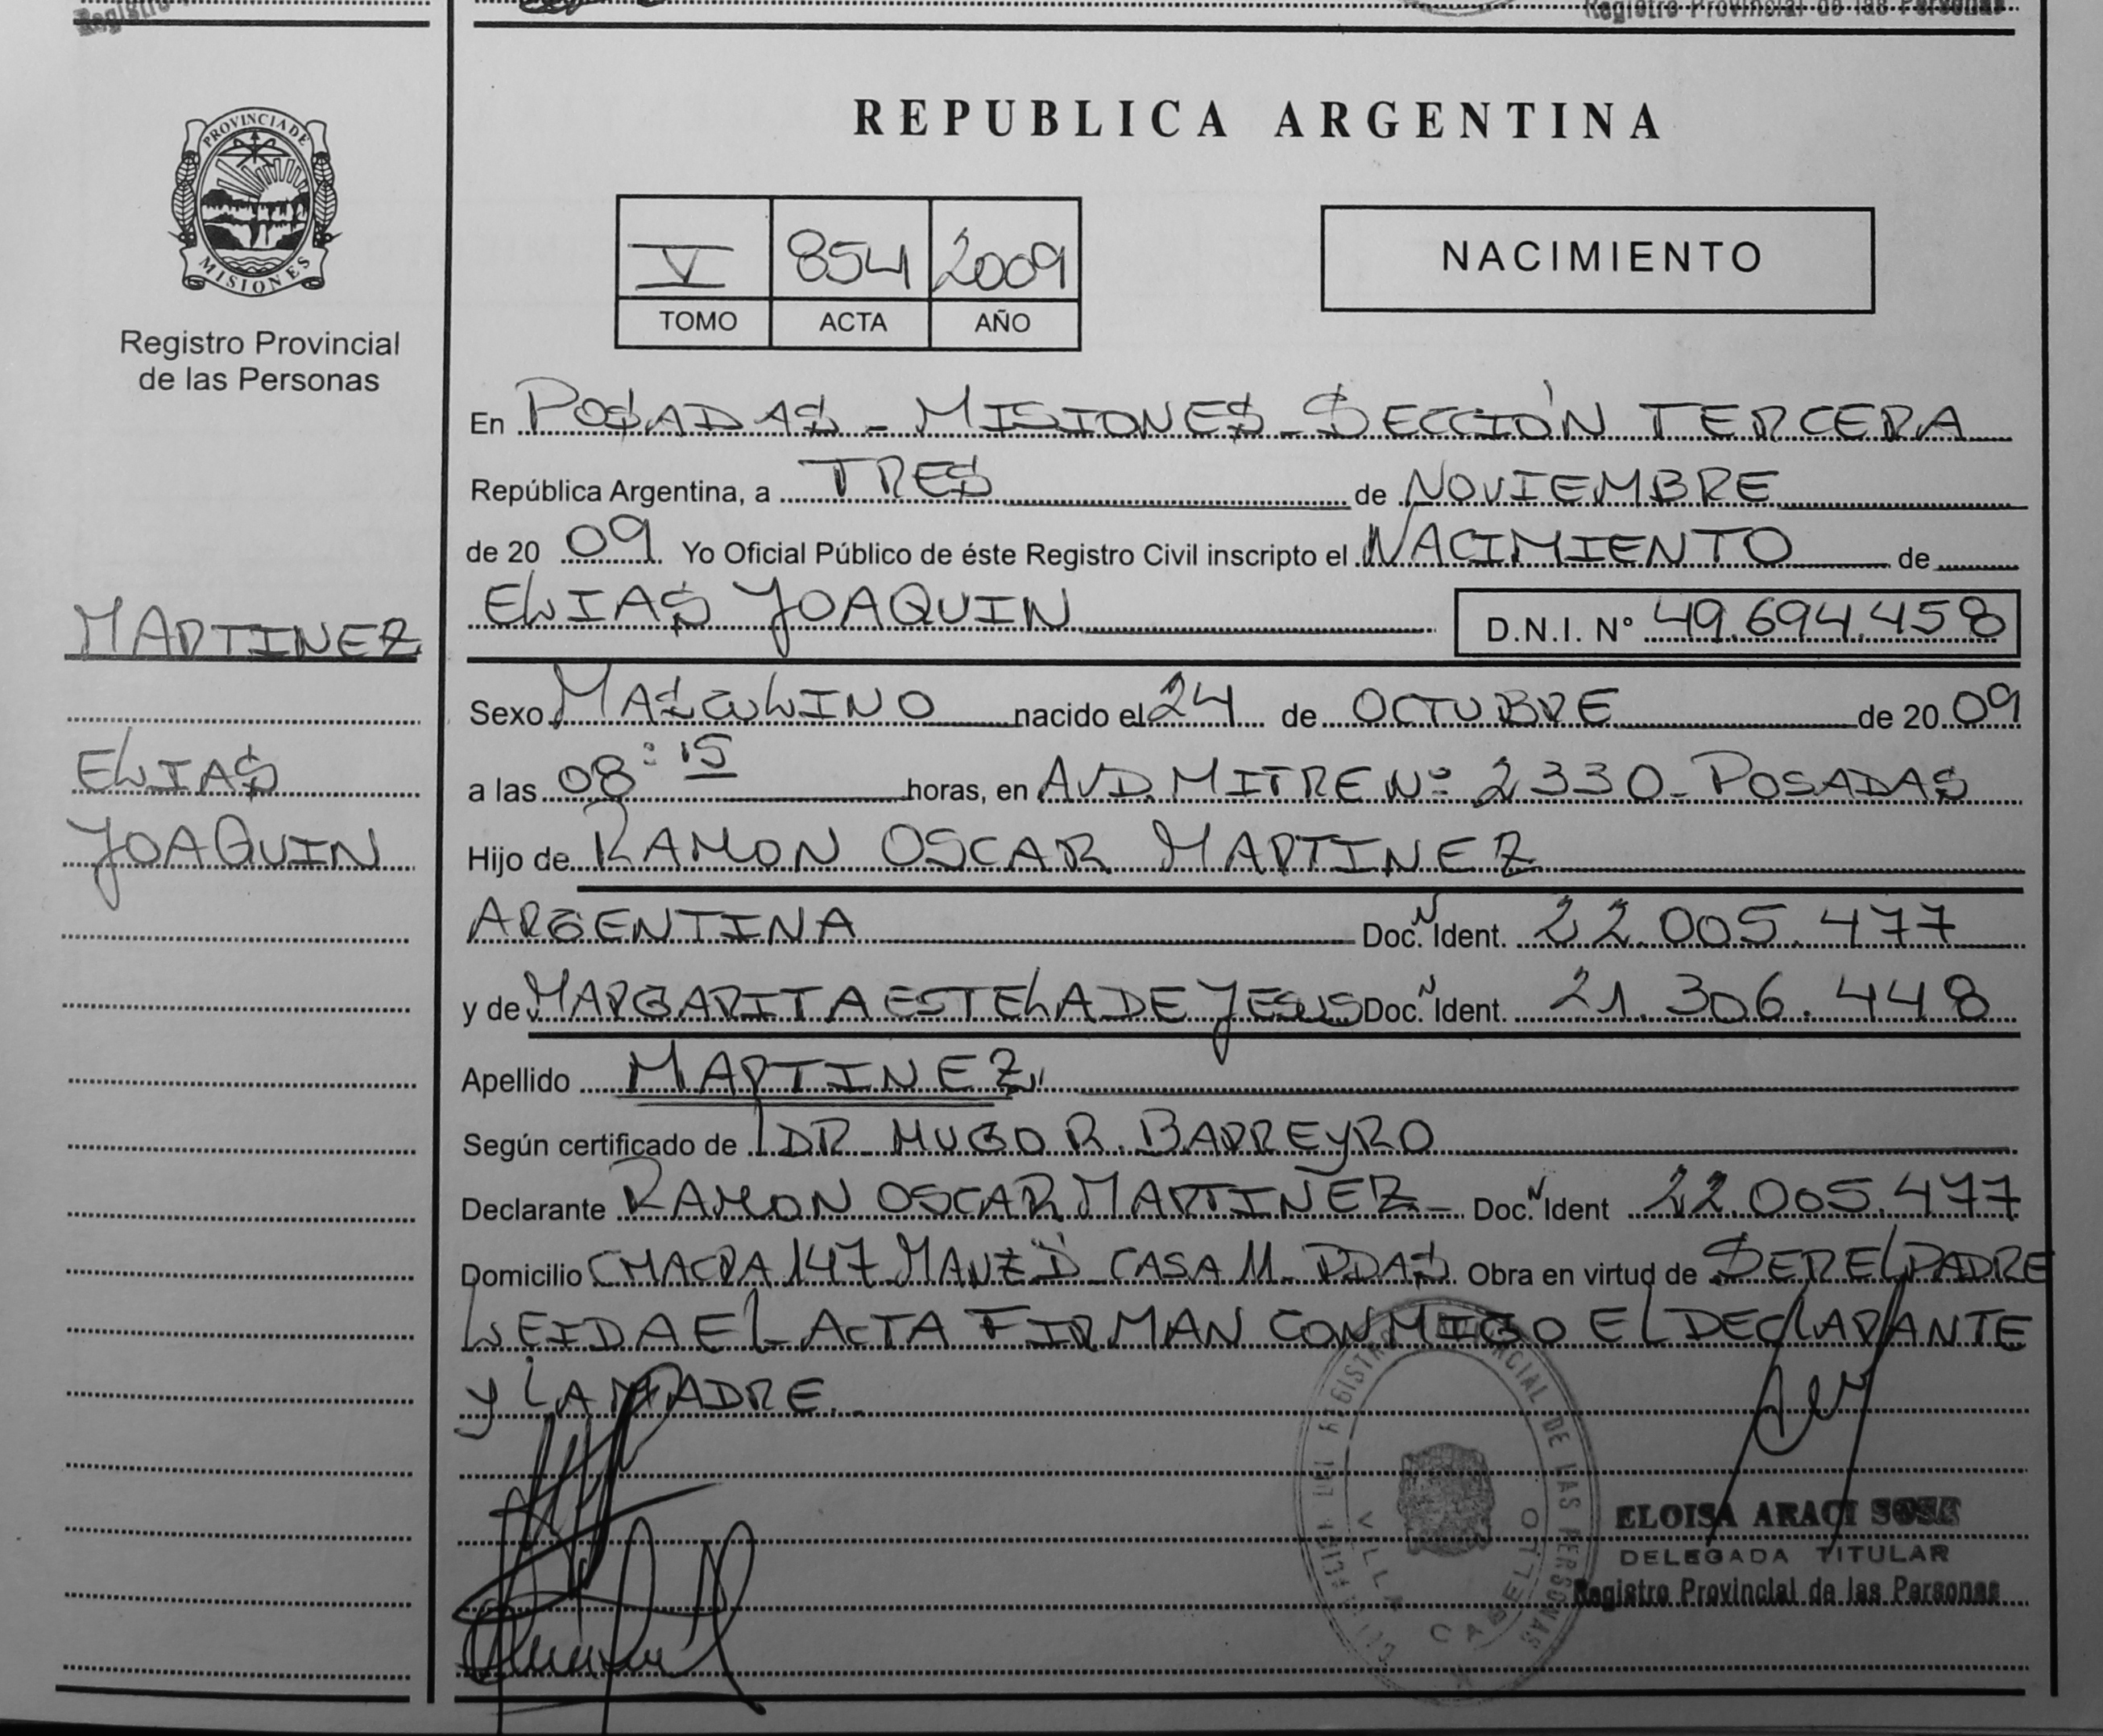 Registro
Registro Provincial de las Personas
PROVINCIA DE
MISIONES
Registro Provincial
de las Personas
MARTINEZ
ELIAS
JOAQUIN
REPUBLICA ARGENTINA
V 854 2009
TOMO ACTA AÑO
NACIMIENTO
En POSADAS - MISIONES - SECCIÓN TERCERA
República Argentina, a TRES de NOVIEMBRE
de 20 09 Yo Oficial Público de éste Registro Civil inscripto el NACIMIENTO de
ELIAS JOAQUIN D.N.I. N° 49.694.458
Sexo MASCULINO nacido el 24 de OCTUBRE de 20 09
a las 08:15 horas, en AVD. MITRE Nº 2330 - POSADAS
Hijo de RAMON OSCAR MARTINEZ
ARGENTINA Doc. N Ident. 22.005.477
y de MARGARITA ESTELA DE JESUS Doc. N Ident. 21.306.448
Apellido MARTINEZ
Según certificado de DR HUGO R. BARREYRO
Declarante RAMON OSCAR MARTINEZ - Doc. N Ident 22.005.477
Domicilio CHACRA 147 MANZ "D" CASA 11 - PDAS Obra en virtud de SER EL PADRE
LEIDA EL ACTA FIRMAN CONMIGO EL DECLARANTE
Y LA MADRE.-
REGISTRO PROVINCIAL DE LAS PERSONAS
VILLA CABELLO
ELOISA ARACI SOSA
DELEGADA TITULAR
Registro Provincial de las Personas